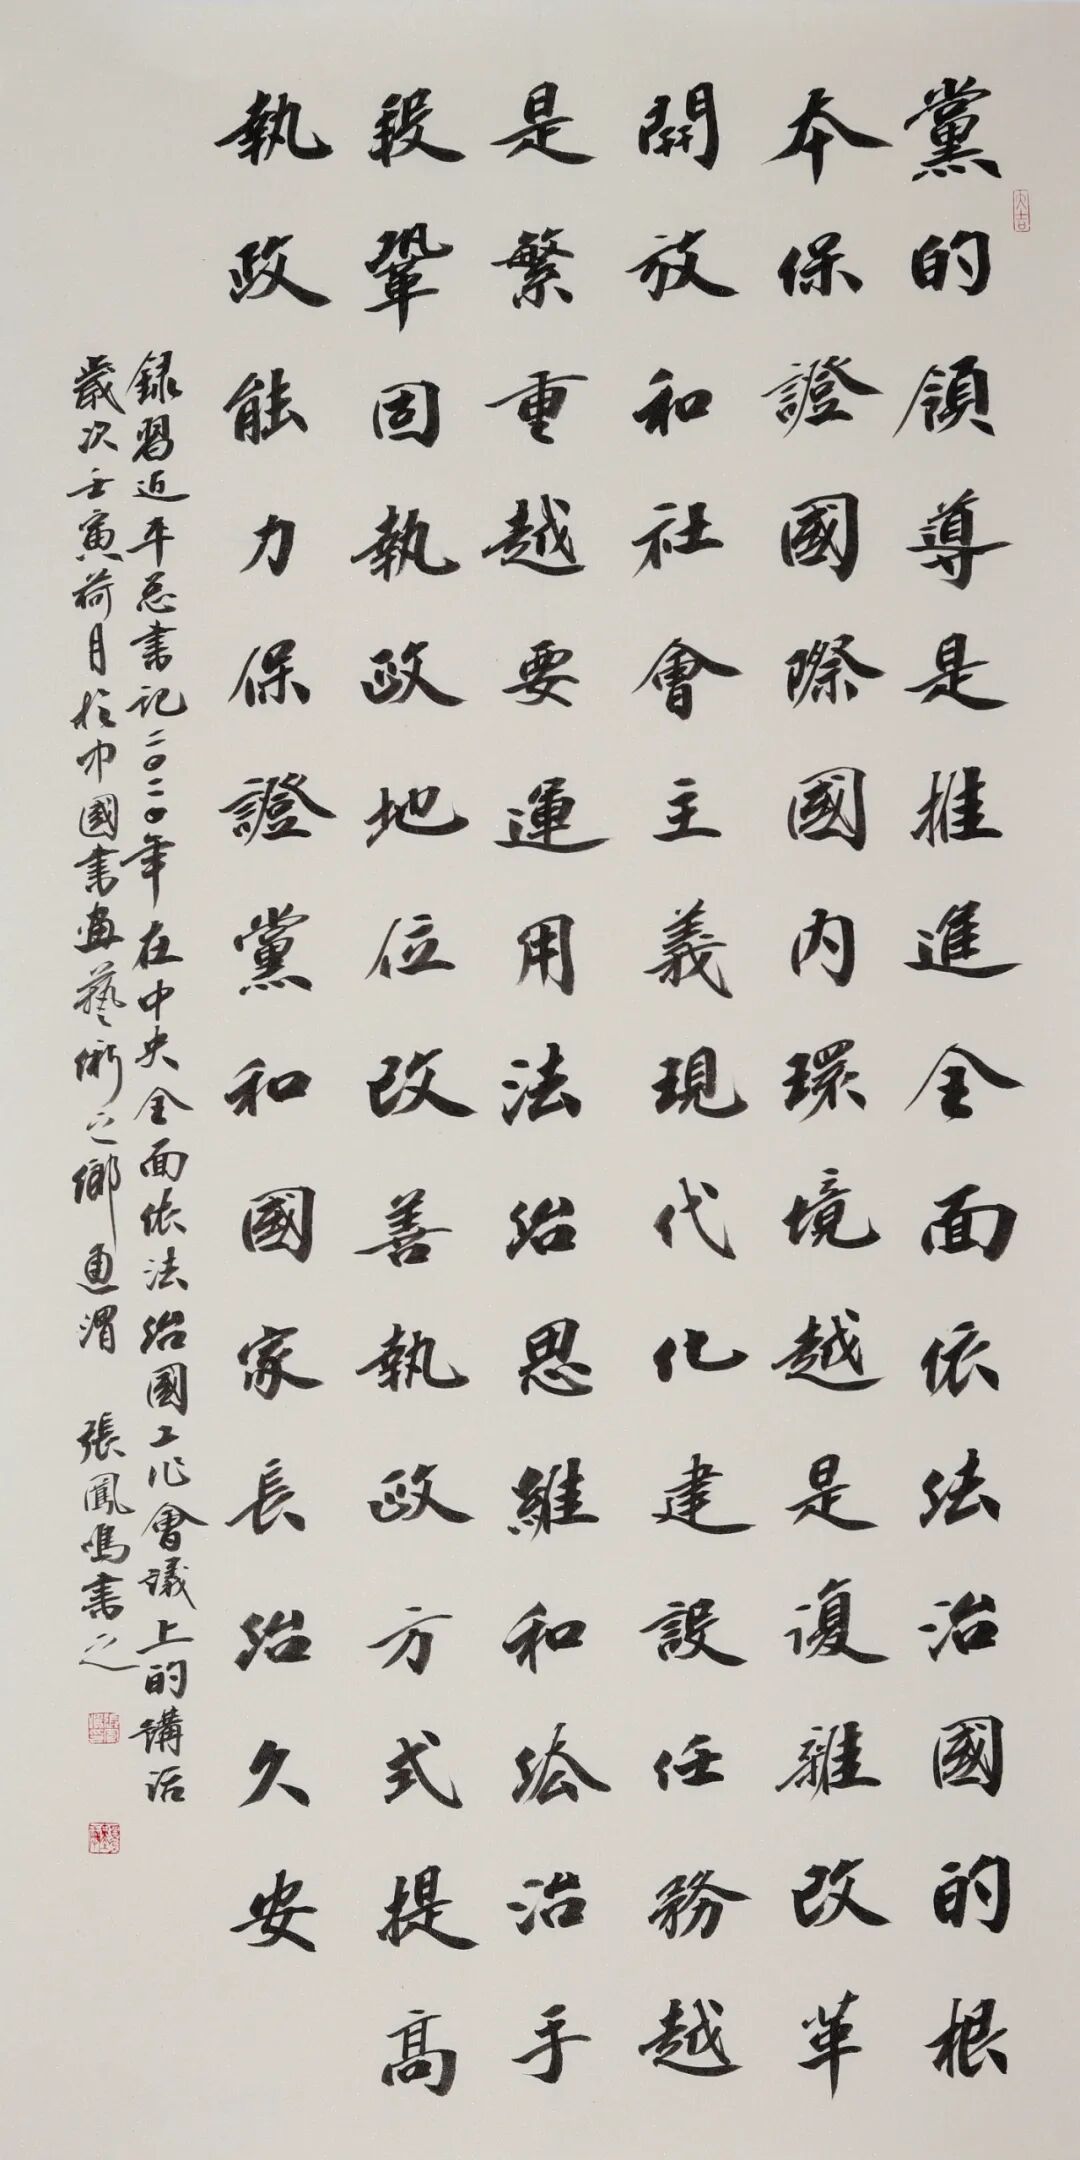 黨的領導是推進全面依法治國的根
本保證國際國內環境越是復雜改革
開放和社會主義現代化建設任務越
是繁重越要運用法治思維和法治手
段鞏固執政地位改善執政方式提高
執政能力保證黨和國家長治久安
録習近平总書記二〇二〇年在中央全面依法治國工作會議上的講話
歲次壬寅荷月於中國書畫藝術之鄉通渭 張鳳鳴書之
大吉